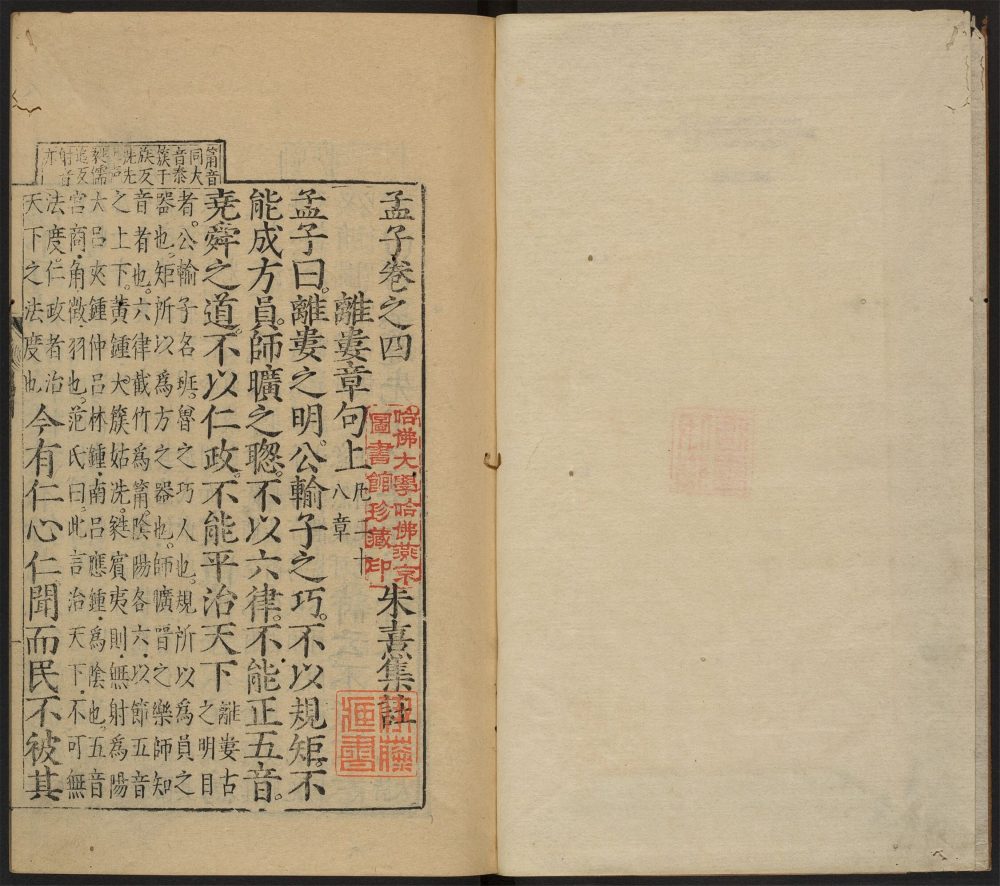 孟子卷之四 朱熹集註
離婁章句上 凡二十
八章
孟子曰。離婁之明。公輸子之巧。不以規矩。不
能成方員。師曠之聰。不以六律。不能正五音。
堯舜之道。不以仁政。不能平治天下 離婁古
之明目
者。公輸子名班。魯之巧人也。規所以爲員之
器也。矩所以爲方之器也。師曠晉之樂師知
音者也。六律截竹爲筩。陰陽各六。以節五音
之上下。黃鍾大簇姑洗。蕤賓夷則。無射爲陽
大呂夾鍾仲呂林鍾。南呂應鍾。爲陰也。五音
宮商角徵羽也。范氏曰。此言治天下。不可無
法度。仁政者治
天下之法度也。今有仁心仁聞而民不被其
筩音
同大
音泰
簇千
族反
洗先
蕤儒
追反
射音
亦
哈佛大學哈佛燕京
圖書館珍藏印